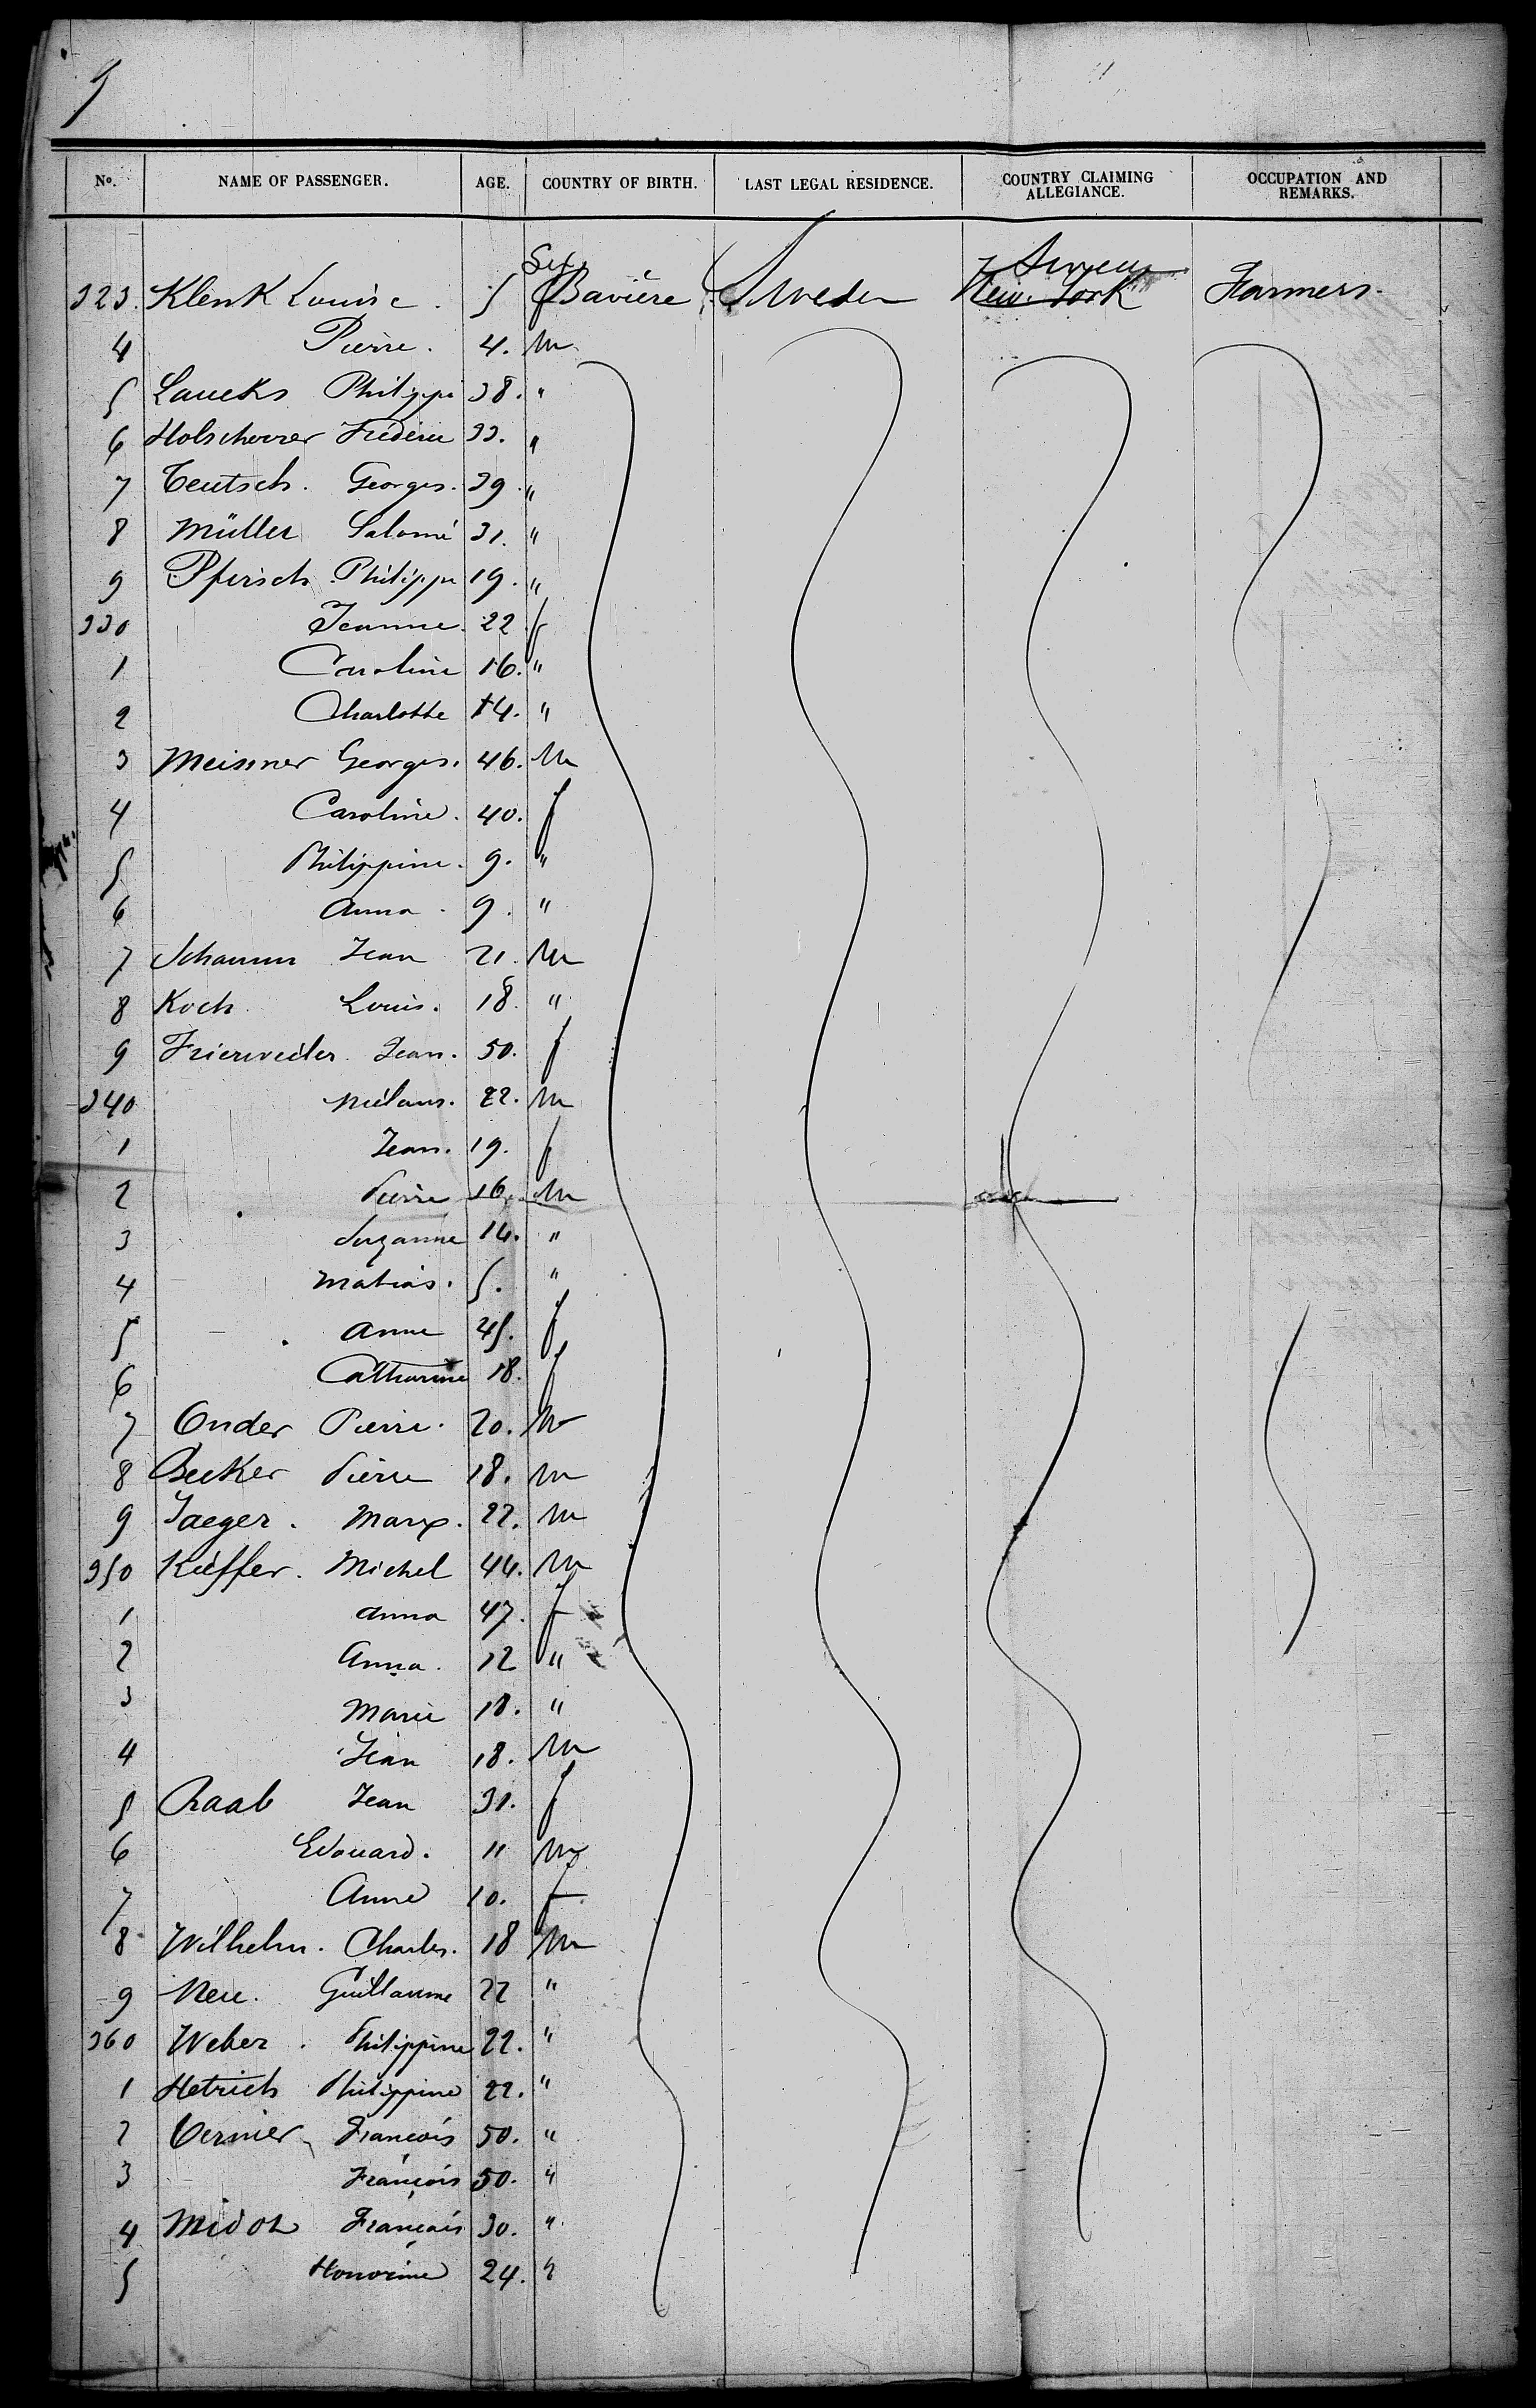 9
No. NAME OF PASSENGER. AGE. COUNTRY OF BIRTH. LAST LEGAL RESIDENCE. COUNTRY CLAIMING ALLEGIANCE. OCCUPATION AND REMARKS.
Sex
323. Klenk Louise. 5 f Bavière Sweden New-York Farmers.
4 Pierre. 4. m
5 Laucks Philippe 38. "
6 Holscherrer Frédéric 33. "
7 Teutsch. Georges. 39. "
8 Müller Salomé 31. "
9 Pfirsch Philippe 19. "
330 Jeanne. 22 f
1 Caroline 16. "
2 Charlotte 14. "
3 Meissner Georges. 46. m
4 Caroline. 40. f
5 Philippine. 9. "
6 Anna. 9. "
7 Schaumm Jean 21. m
8 Koch Louis. 18. "
9 Frierweiler Jean. 50. f
340 Niclaus. 22. m
1 Jean. 19. f
2 Pierre 16. m
3 Suzanne 14. "
4 Matias. 5. "
5 Anne 45. f
6 Catharine 18. f
7 Onder Pierre. 20. m
8 Becker Pierre 18. m
9 Jaeger. Marx. 22. m
350 Kieffer. Michel 44. m
1 Anna 47. f
2 Anna. 12 "
3 Marie 18. "
4 Jean 18. m
5 Raab Jean 31. f
6 Edouard. 11 m
7 Anne 10. f
8 Wilhelm. Charles. 18 m
9 Neu. Guillaume 22 "
360 Weber. Philippine 22. "
1 Hetrich Philippine 22. "
2 Vernier François 50. "
3 François 50. "
4 Midot François 30. "
5 Honorine 24. "